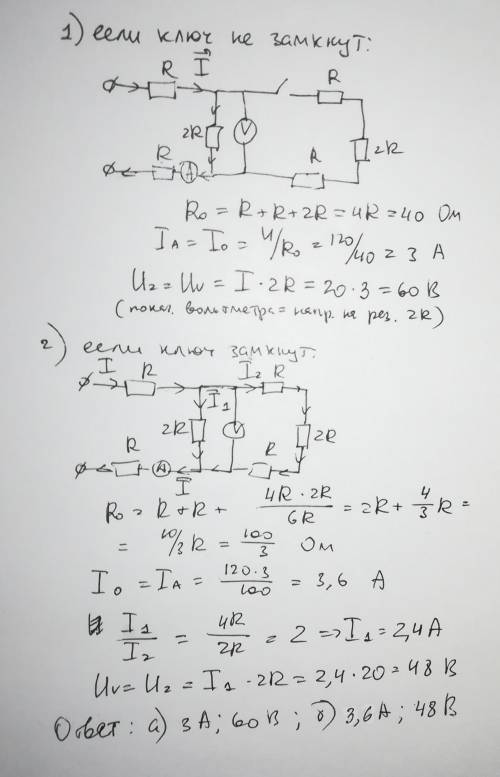 1) если ключ не замкнут:
R I R
2R V 2R
R A R
R₀ = R + R + 2R = 4R = 40 Ом
I_A = I₀ = U/R₀ = 120/40 = 3 А
U₂ = U_V = I · 2R = 20 · 3 = 60 В
(показ. вольтметра = напр. на рез. 2R)
2) если ключ замкнут:
I R I₂ R
I₁
2R V 2R
R A I R
R₀ = R + R + 4R · 2R / 6R = 2R + 4/3 R =
= 10/3 R = 100/3 Ом
I₀ = I_A = 120·3/100 = 3,6 А
I₁/I₂ = 4R/2R = 2 ⇒ I₁ = 2,4 А
U_V = U₂ = I₁ · 2R = 2,4 · 20 = 48 В
Ответ: а) 3 А; 60 В; б) 3,6 А; 48 В